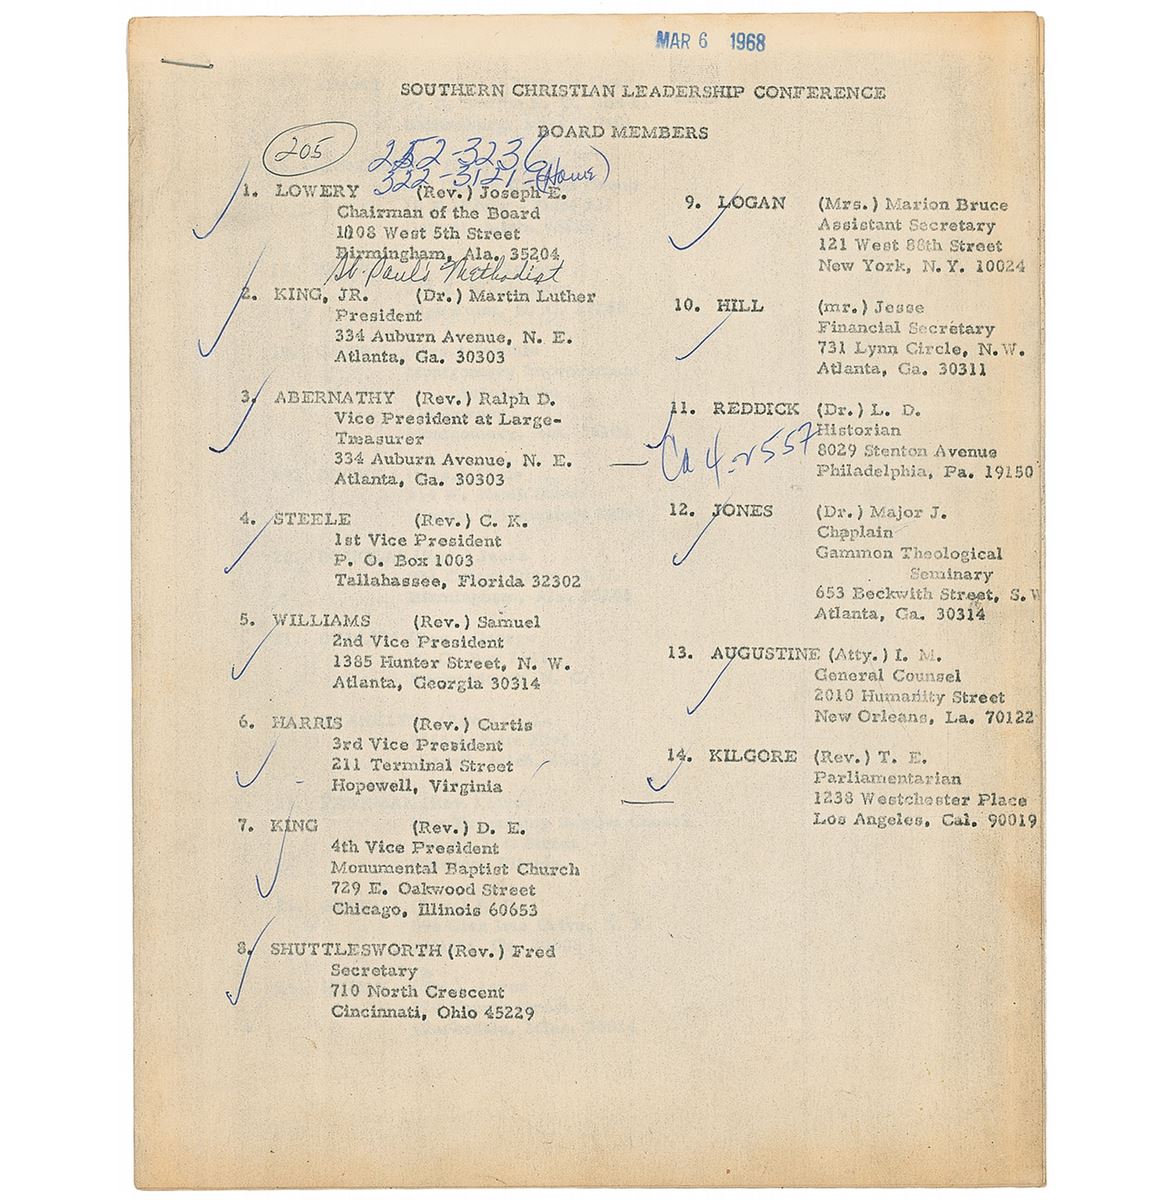 MAR 6 1968
SOUTHERN CHRISTIAN LEADERSHIP CONFERENCE
BOARD MEMBERS
205
252-323
322-3121-(Home)
1. LOWERY (Rev.) Joseph E.
Chairman of the Board
1108 West 5th Street
Birmingham, Ala. 35204
St. Paul's Methodist
2. KING, JR. (Dr.) Martin Luther
President
334 Auburn Avenue, N. E.
Atlanta, Ga. 30303
3. ABERNATHY (Rev.) Ralph D.
Vice President at Large-
Treasurer
334 Auburn Avenue, N. E.
Atlanta, Ga. 30303
4. STEELE (Rev.) C. K.
1st Vice President
P. O. Box 1003
Tallahassee, Florida 32302
5. WILLIAMS (Rev.) Samuel
2nd Vice President
1385 Hunter Street, N. W.
Atlanta, Georgia 30314
6. HARRIS (Rev.) Curtis
3rd Vice President
211 Terminal Street
Hopewell, Virginia
7. KING (Rev.) D. E.
4th Vice President
Monumental Baptist Church
729 E. Oakwood Street
Chicago, Illinois 60653
8. SHUTTLESWORTH (Rev.) Fred
Secretary
710 North Crescent
Cincinnati, Ohio 45229
9. LOGAN (Mrs.) Marion Bruce
Assistant Secretary
121 West 88th Street
New York, N. Y. 10024
10. HILL (mr.) Jesse
Financial Secretary
731 Lynn Circle, N. W.
Atlanta, Ga. 30311
11. REDDICK (Dr.) L. D.
Historian
Ca 4-2557
8029 Stenton Avenue
Philadelphia, Pa. 19150
12. JONES (Dr.) Major J.
Chaplain
Gammon Theological
Seminary
653 Beckwith Street, S. W
Atlanta, Ga. 30314
13. AUGUSTINE (Atty.) I. M.
General Counsel
2010 Humanity Street
New Orleans, La. 70122
14. KILGORE (Rev.) T. E.
Parliamentarian
1238 Westchester Place
Los Angeles, Cal. 90019